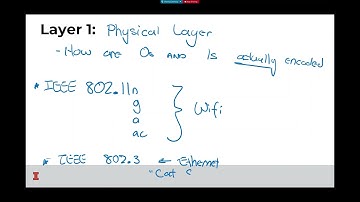 Layer 1: Physical Layer
- How are 0s and 1s actually encoded
* IEEE 802.11n
g
a
ac
Wifi
* IEEE 802.3 ← Ethernet
- Cat